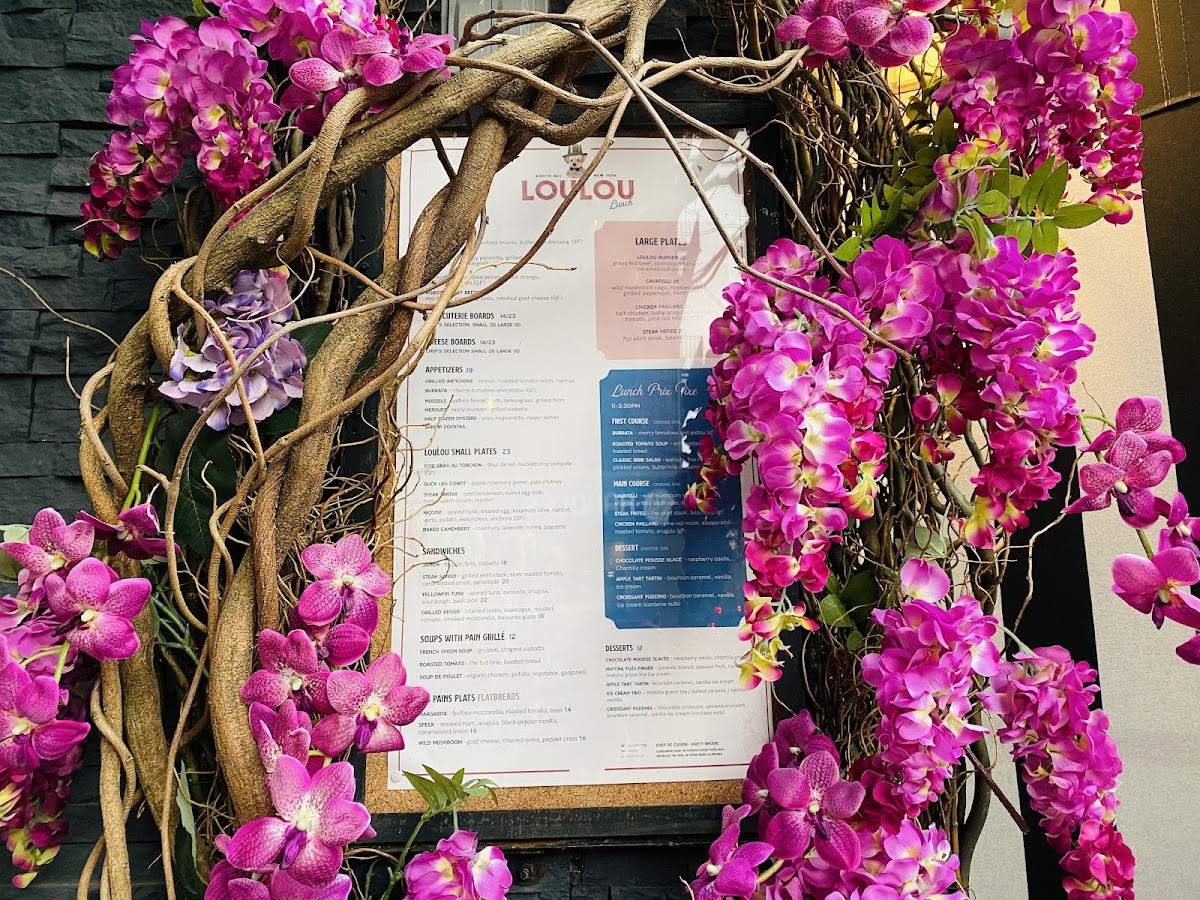 EIGHTH AVE NEW YORK
LOULOU
Lunch
onions,
dressing (GF)
pancetta, grilled
orange,
(GF)
smoked goat cheese (GF)
CUTERIE BOARDS 14/23
'S SELECTION: SMALL (3) LARGE (5)
EESE BOARDS 14/23
CHEF'S SELECTION: SMALL (3) LARGE (5)
APPETIZERS 19
GRILLED ARTICHOKE - lemon, roasted tomato relish, harissa
BURRATA - cherry tomatoes and pistou (GF)
MUSSELS - saffron fennel broth, lemongrass, grilled
MERGUEZ - spicy mustard, grilled ciabatta
HALF DOZEN OYSTERS - yuzu mignonette, meyer lemon
SHRIMP COCKTAIL
LOULOU SMALL PLATES 23
FOIE GRAS AU TORCHON - fleur de sel, huckleberry compote
(GF)
DUCK LEG CONFIT - azore rosemary puree, gala chutney
STEAK TARTAR - beef tenderloin, cured egg yolk,
NIÇOISE - seared tuna, shaved egg, kalamata olive, haricot
verts, potato, watercress, anchovy (GF)
BAKED CAMEMBERT - rosemary, lavender honey, baguette
SANDWICHES
JAMON - brie, ciabatta 18
STEAK - grilled skirt steak, slow roasted tomato,
caramelized onion, persillade 20
YELLOWFIN TUNA - seared tuna, avocado, arugula,
sourdough, basil aioli 22
GRILLED VEGGIE - charred leeks, asparagus, roasted
tomato, smoked mozzarella, balsamic glaze 18
SOUPS WITH PAIN GRILLÉ 12
FRENCH ONION SOUP - gruyere, charred ciabatta
ROASTED TOMATO - melted brie, toasted bread
SOUP DE POULET - organic chicken, potato, vegetable, garganelli
PAINS PLATS FLATBREADS
MARGARITA - buffalo mozzarella, roasted tomato, basil 14
SPECK - smoked ham, arugula, black pepper ricotta,
caramelized onion 16
WILD MUSHROOM - goat cheese, charred leeks, pepper cress 16
LARGE PLATES
LOULOU BURGER
grass fed beef,
caramelized onion
CAVATELLI 26
wild mushroom ragu, roasted
grilled asparagus,
CHICKEN PAILLARD
half chicken, baby arugula
tomato, pine nut
STEAK FRITES
7oz skirt steak,
Lunch Prix Fixe
11-3:30PM
FIRST COURSE CHOOSE ONE
BURRATA - cherry tomatoes and pistou
ROASTED TOMATO SOUP -
toasted bread
CLASSIC BIBB SALAD -
pickled onions, buttermilk
MAIN COURSE CHOOSE ONE
CAVATELLI - wild mushroom
STEAK FRITES - 7oz skirt steak, (gf)
CHICKEN PAILLARD - pine nut relish, aleppo aioli,
roasted tomato, arugula (gf)
DESSERT CHOOSE ONE
CHOCOLATE MOUSSE GLACÉ - raspberry coulis,
Chantilly cream
APPLE TART TARTIN - bourbon caramel, vanilla
ice cream
CROISSANT PUDDING - bourbon caramel, vanilla
ice cream (contains nuts)
DESSERTS 12
CHOCOLATE MOUSSE GLACÉE - raspberry coulis, chantilly
MATCHA YUZU FINGER - joconde biscuit, passion fruit,
matcha green tea ice cream
APPLE TART TARTIN - bourbon caramel, vanilla ice cream
ICE CREAM TRIO - matcha green tea / salted caramel /
vanilla
CROISSANT PUDDING - chocolate croissant, almond croissant,
bourbon caramel, vanilla ice cream (contains nuts)
CHEF DE CUISINE: JARETT BRODIE